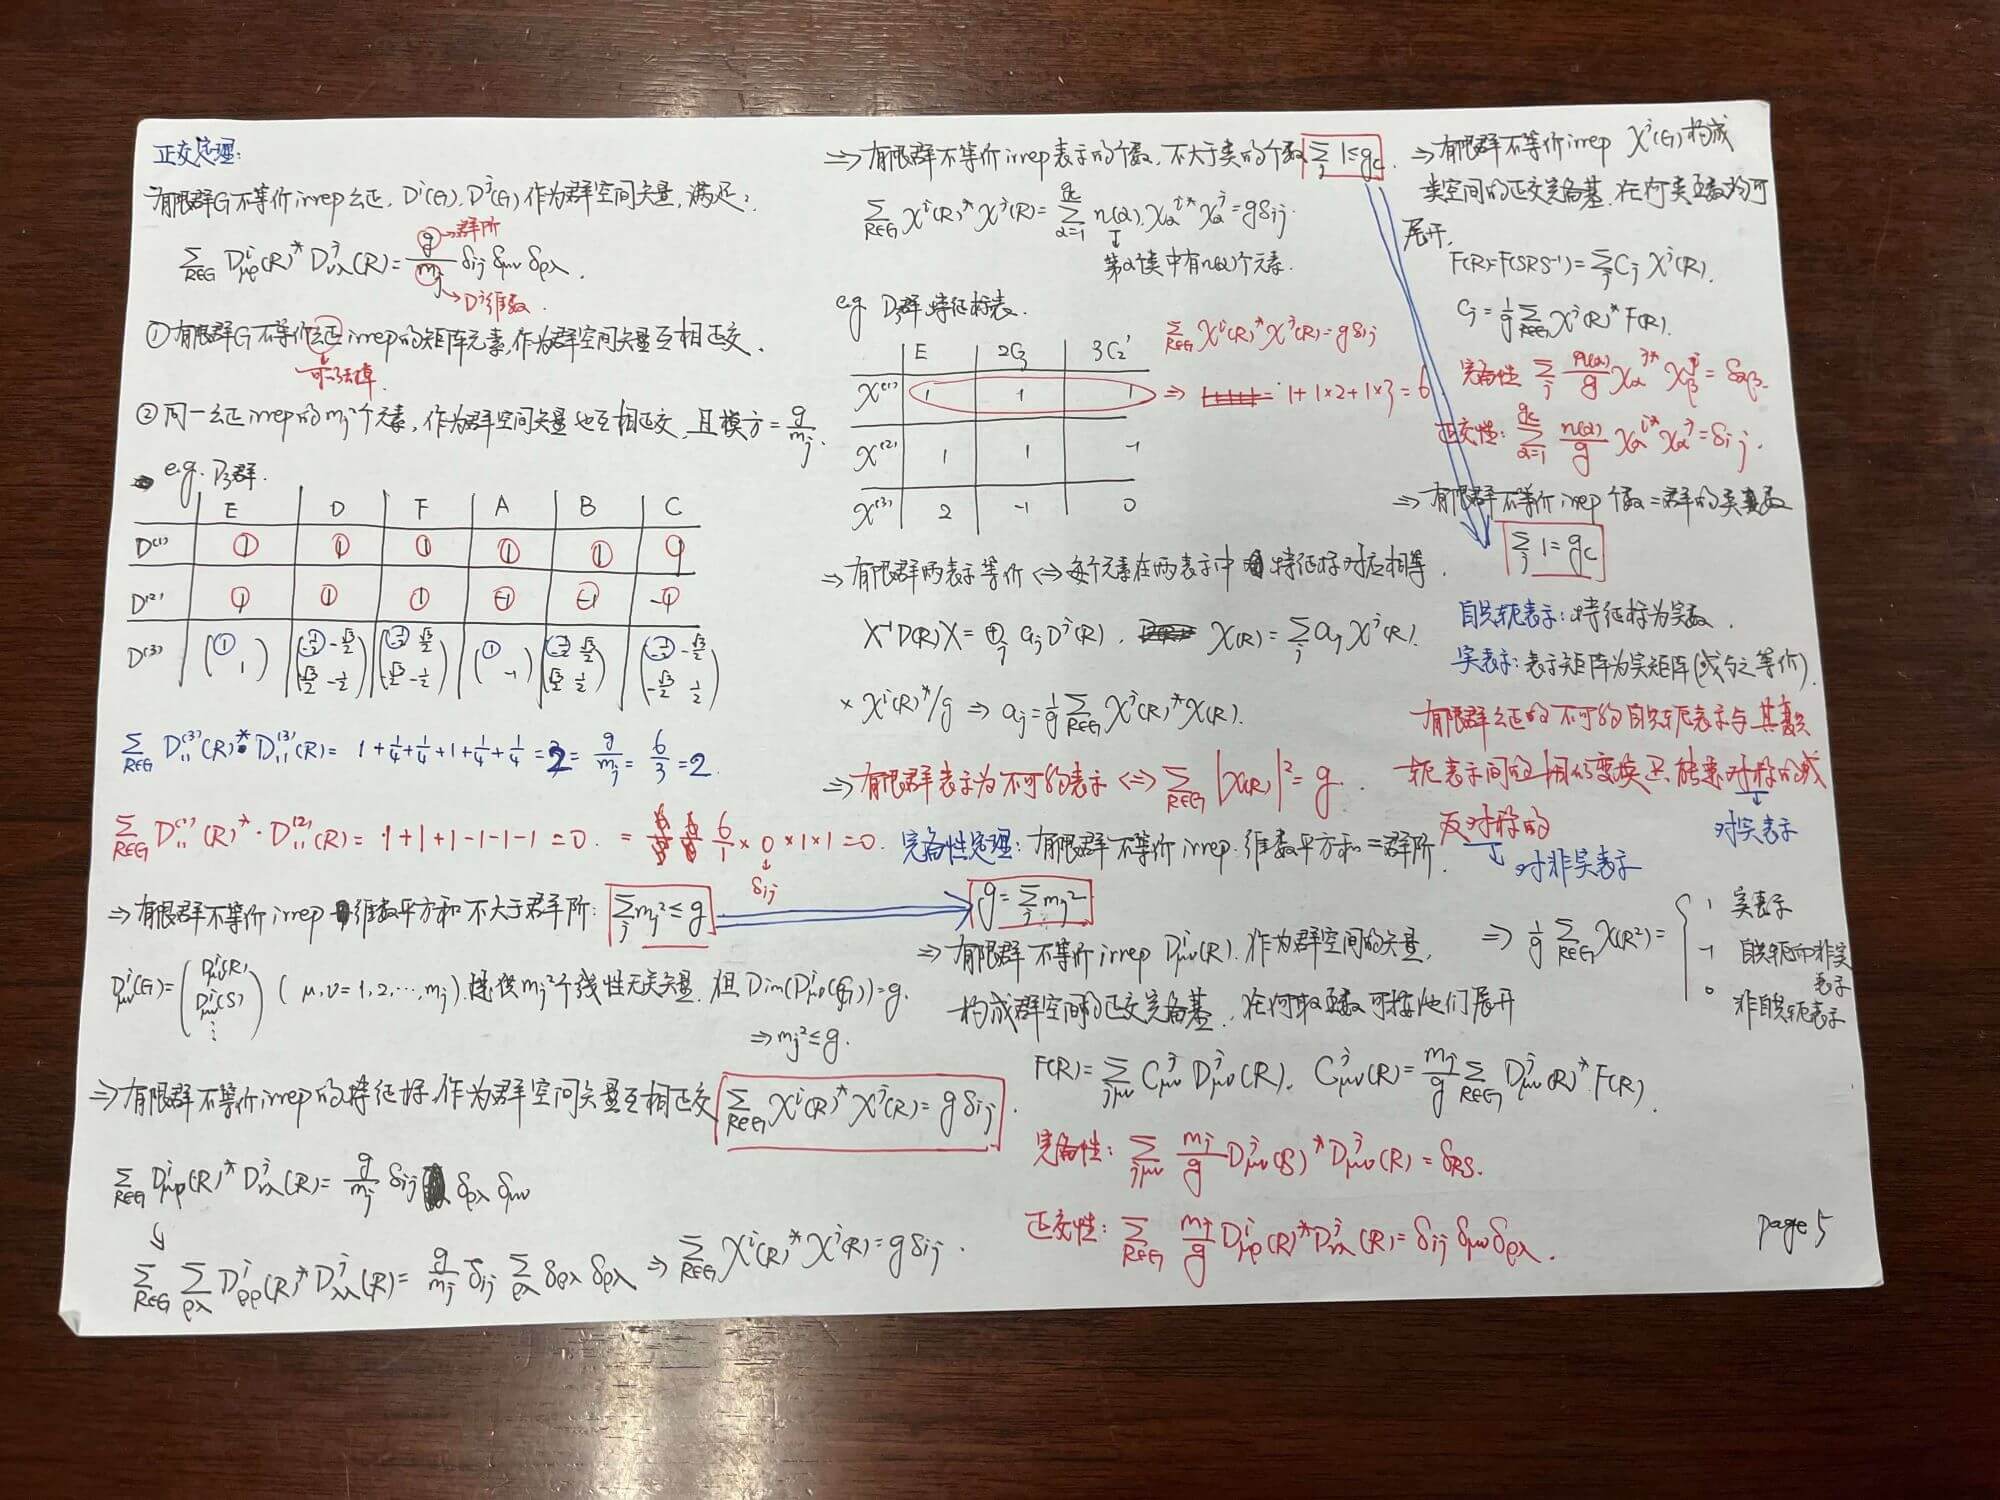 正交定理:
有限群G不等价irrep幺正, Dⁱ(G), Dʲ(G)作为群空间矢量, 满足:
Σ_{R∈G} Dⁱ_{μρ}(R)* Dʲ_{νλ}(R) = g/m_j δ_{ij} δ_{μν} δ_{ρλ}.
→群阶
→Dʲ维数.
① 有限群G不等价幺正irrep的矩阵元素, 作为群空间矢量互相正交.
可以去掉.
② 同一幺正irrep的m_j²个元素, 作为群空间矢量也互相正交, 且模方 = g/m_j.
e.g. D₃群.
E D F A B C
D⁽¹⁾ 1 1 1 1 1 1
D⁽²⁾ 1 1 1 -1 -1 -1
D⁽³⁾ (1 1) (-1/2 -√3/2 √3/2 -1/2) (-1/2 √3/2 -√3/2 -1/2) (1 -1) (-1/2 √3/2 √3/2 1/2) (-1/2 -√3/2 -√3/2 1/2)
Σ_{R∈G} D₁₁⁽³⁾(R)* · D₁₁⁽³⁾(R) = 1 + 1/4 + 1/4 + 1 + 1/4 + 1/4 = 2 = g/m_j = 6/3 = 2
Σ_{R∈G} D₁₁⁽¹⁾(R)* · D₁₁⁽²⁾(R) = 1+1+1-1-1-1 = 0. = 6/1 × 0 × 1 × 1 = 0.
δ_{ij}
⇒ 有限群不等价irrep 维数平方和不大于群阶: Σ_j m_j² ≤ g
Dⁱ_{μν}(G) = (Dⁱ_{μν}(R) Dⁱ_{μν}(S) ⋮) (μ,ν=1,2,⋯,m_j). 提供m_j²个线性无关矢量. 但Dim(Dⁱ_{μν}(G))=g.
⇒ m_j² ≤ g.
⇒ 有限群不等价irrep的特征标, 作为群空间矢量互相正交 Σ_{R∈G} χⁱ(R)* χʲ(R) = g δ_{ij}.
Σ_{R∈G} Dⁱ_{μρ}(R)* Dʲ_{νλ}(R) = g/m_j δ_{ij} δ_{ρλ} δ_{μν}
↓
Σ_{R∈G} Σ_{ρλ} Dⁱ_{ρρ}(R)* Dʲ_{λλ}(R) = g/m_j δ_{ij} Σ_{ρλ} δ_{ρλ} δ_{ρλ} ⇒ Σ_{R∈G} χⁱ(R)* χʲ(R) = g δ_{ij}.
⇒ 有限群不等价irrep表示的个数, 不大于类的个数 Σ_j 1 ≤ g_c.
Σ_{R∈G} χⁱ(R)* χʲ(R) = Σ_{α=1}^{g_c} n(α) χ_α^{i*} χ_α^j = g δ_{ij}.
↓
第α个类中有n(α)个元素.
e.g. D₃群特征标表.
Σ_{R∈G} χⁱ(R)* χʲ(R) = g δ_{ij}
E 2C₃ 3C₂'
χ⁽¹⁾ 1 1 1 ⇒ = 1 + 1×2 + 1×3 = 6
χ⁽²⁾ 1 1 -1
χ⁽³⁾ 2 -1 0
⇒ 有限群两表示等价 ⇔ 每个元素在两表示中 特征标对应相等.
X⁻¹D(R)X = ⊕_j a_j Dʲ(R), χ(R) = Σ_j a_j χʲ(R).
× χⁱ(R)*/g ⇒ a_j = 1/g Σ_{R∈G} χʲ(R)* χ(R).
⇒ 有限群表示为不可约表示 ⇔ Σ_{R∈G} |χ(R)|² = g.
完备性定理: 有限群不等价irrep, 维数平方和 = 群阶.
g = Σ_j m_j²
⇒ 有限群不等价irrep Dⁱ_{μν}(R). 作为群空间的矢量,
构成群空间的正交完备基, 任何群函数可按他们展开
F(R) = Σ_{jμν} Cʲ_{μν} Dʲ_{μν}(R). Cʲ_{μν}(R) = m_j/g Σ_{R∈G} Dʲ_{μν}(R)* F(R).
完备性: Σ_{jμν} m_j/g Dʲ_{μν}(S)* Dʲ_{μν}(R) = δ_{RS}.
正交性: Σ_{R∈G} m_j/g Dⁱ_{μρ}(R)* Dʲ_{νλ}(R) = δ_{ij} δ_{μν} δ_{ρλ}.
⇒ 有限群不等价irrep χʲ(G)构成
类空间的正交完备基, 任何类函数均可
展开,
F(R) = F(SRS⁻¹) = Σ_j C_j χʲ(R).
C_j = 1/g Σ_{R∈G} χʲ(R)* F(R).
完备性 Σ_j n(α)/g χ_α^{j*} χ_β^j = δ_{αβ}.
正交性: Σ_{α=1}^{g_c} n(α)/g χ_α^{i*} χ_α^j = δ_{ij}.
⇒ 有限群不等价irrep个数 = 群的类数
Σ_j 1 = g_c
自共轭表示: 特征标为实数.
实表示: 表示矩阵为实矩阵(或与之等价).
有限群幺正的不可约自共轭表示与其复共
轭表示间的相似变换只能是对称的或
反对称的
↓ 对实表示
↓ 对非实表示
⇒ 1/g Σ_{R∈G} χ(R²) = { 1 实表示
-1 自共轭而非实表示
0 非自共轭表示
page 5